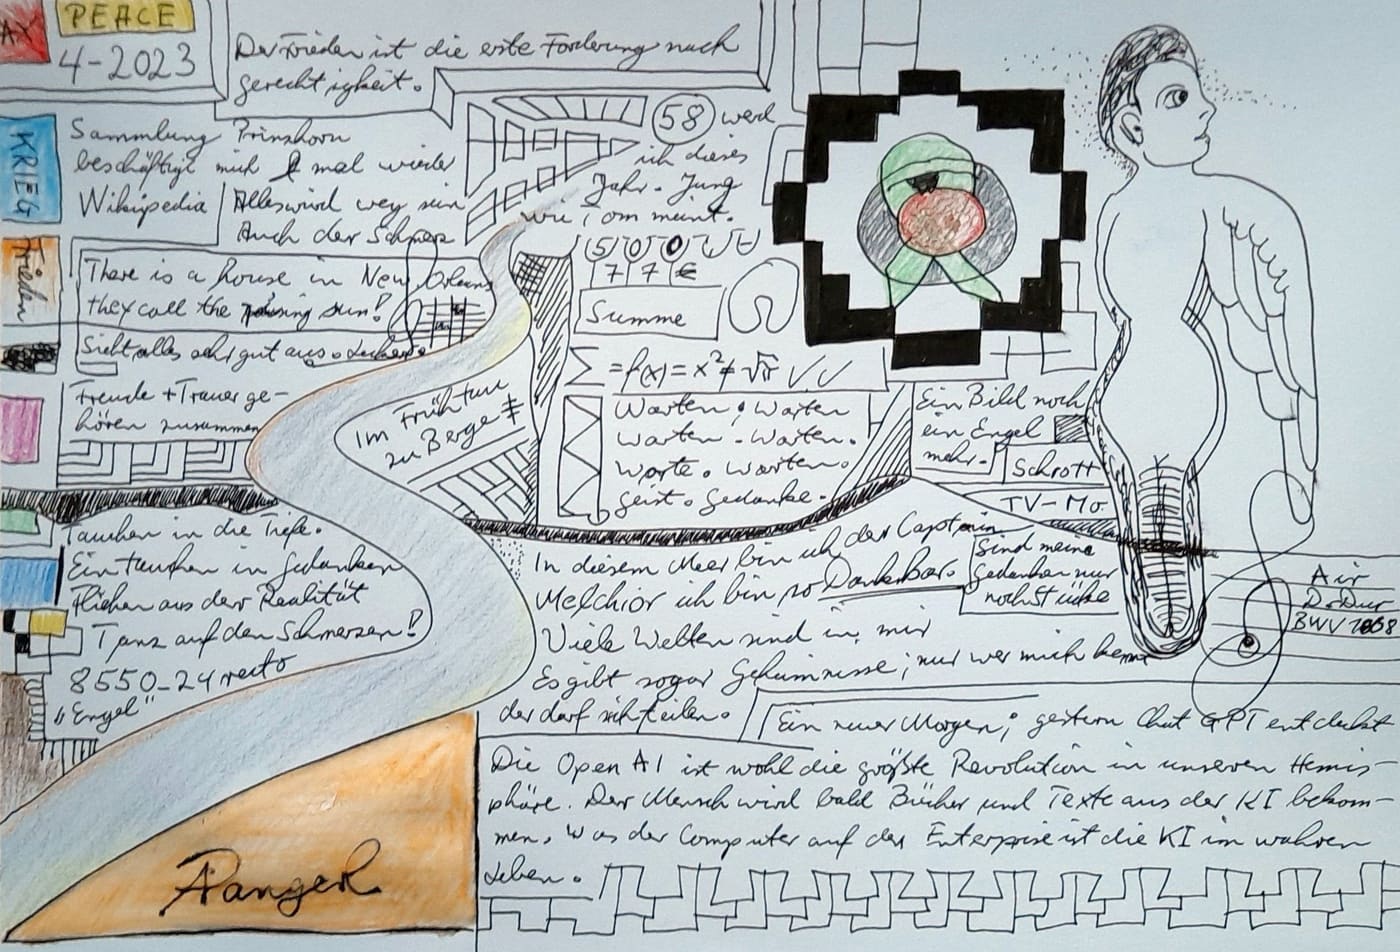 AY PEACE
4-2023
Der Frieden ist die erste Forderung nach
gerechtigkeit.
KRIEG
Sammlung Prinzhorn
beschäftigt mich 1 mal wieder
Wikipedia
Alles wird weg sein
Auch der Schmerz
58 werd
ich dieses
Jahr. Jung
wie, om meint.
Frieden
There is a house in New Orleans
they call the rising sun!
Sieht alles sehr gut aus.
Freude + Trauer ge-
hören zusammen
500
77€
Summe
Σ = f(x) = x² ≠ √π √√
Im Frühtau
zu Berge
Warten, Warten
Warten. Warten.
Warte. Warten.
geist. Gedanke.
Ein Bild noch
ein Engel
mehr.
Schrott
TV-Mo.
Tauchen in die Tiefe.
Eintauchen in Gedanken
fliehen aus der Realität
Tanz auf den Schmerzen!
8550-24 recto
"Engel"
In diesem Meer bin ich der Captain
Melchior ich bin so Dankbar.
Sind meine
gedanken nur
noch
Viele Welten sind in mir
Es gibt sogar Geheimnisse, nur wer mich kennt
der darf sich teilen.
Air
D-Dur
BWV 1068
Ein neuer Morgen, gestern Chat GPT entdeckt
Die Open AI ist wohl die größte Revolution in unseren Hemis-
phäre. Der Mensch wird bald Bücher und Texte aus der KI bekom-
men. Was der Computer auf der Enterprise ist die KI im wahren
Leben.
Ranger